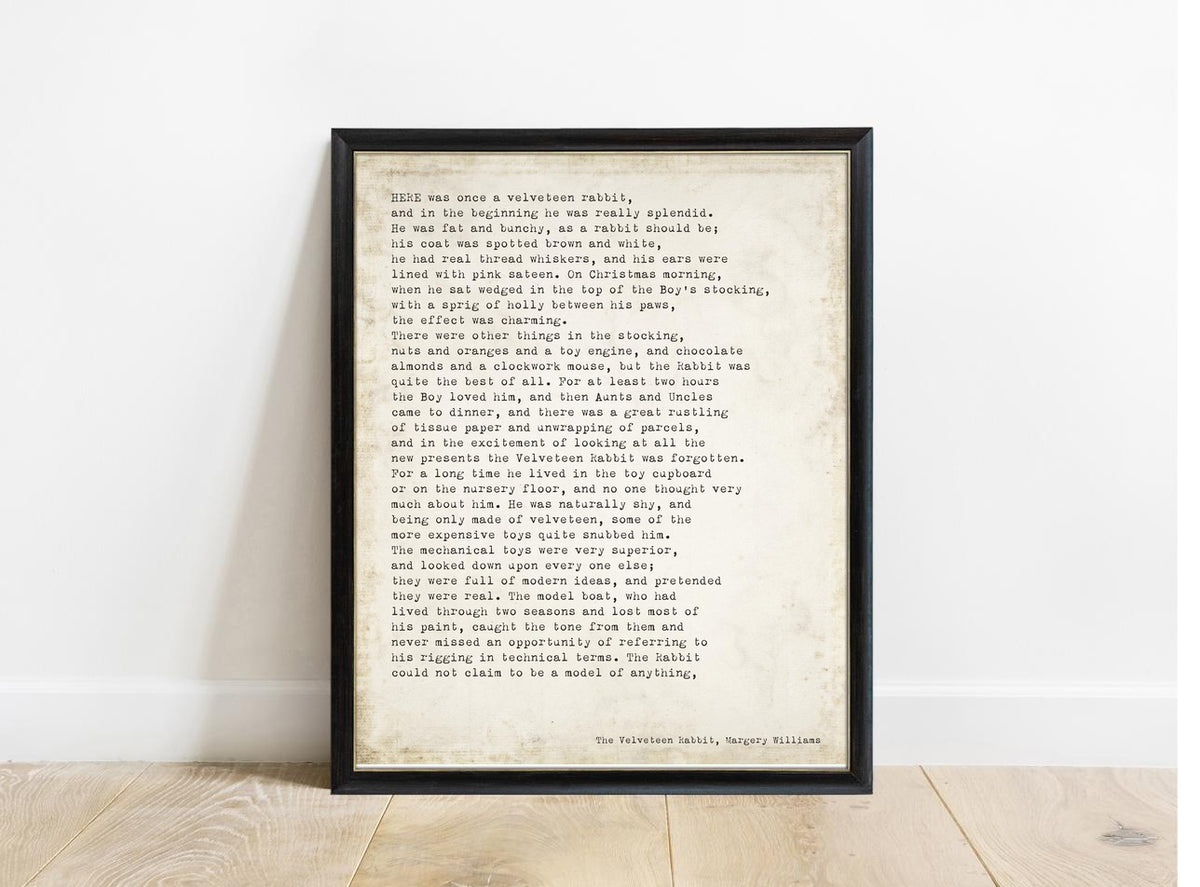 HERE was once a velveteen rabbit,
and in the beginning he was really splendid.
He was fat and bunchy, as a rabbit should be;
his coat was spotted brown and white,
he had real thread whiskers, and his ears were
lined with pink sateen. On Christmas morning,
when he sat wedged in the top of the Boy's stocking,
with a sprig of holly between his paws,
the effect was charming.
There were other things in the stocking,
nuts and oranges and a toy engine, and chocolate
almonds and a clockwork mouse, but the Rabbit was
quite the best of all. For at least two hours
the Boy loved him, and then Aunts and Uncles
came to dinner, and there was a great rustling
of tissue paper and unwrapping of parcels,
and in the excitement of looking at all the
new presents the Velveteen Rabbit was forgotten.
For a long time he lived in the toy cupboard
or on the nursery floor, and no one thought very
much about him. He was naturally shy, and
being only made of velveteen, some of the
more expensive toys quite snubbed him.
The mechanical toys were very superior,
and looked down upon every one else;
they were full of modern ideas, and pretended
they were real. The model boat, who had
lived through two seasons and lost most of
his paint, caught the tone from them and
never missed an opportunity of referring to
his rigging in technical terms. The Rabbit
could not claim to be a model of anything,
The Velveteen Rabbit, Margery Williams